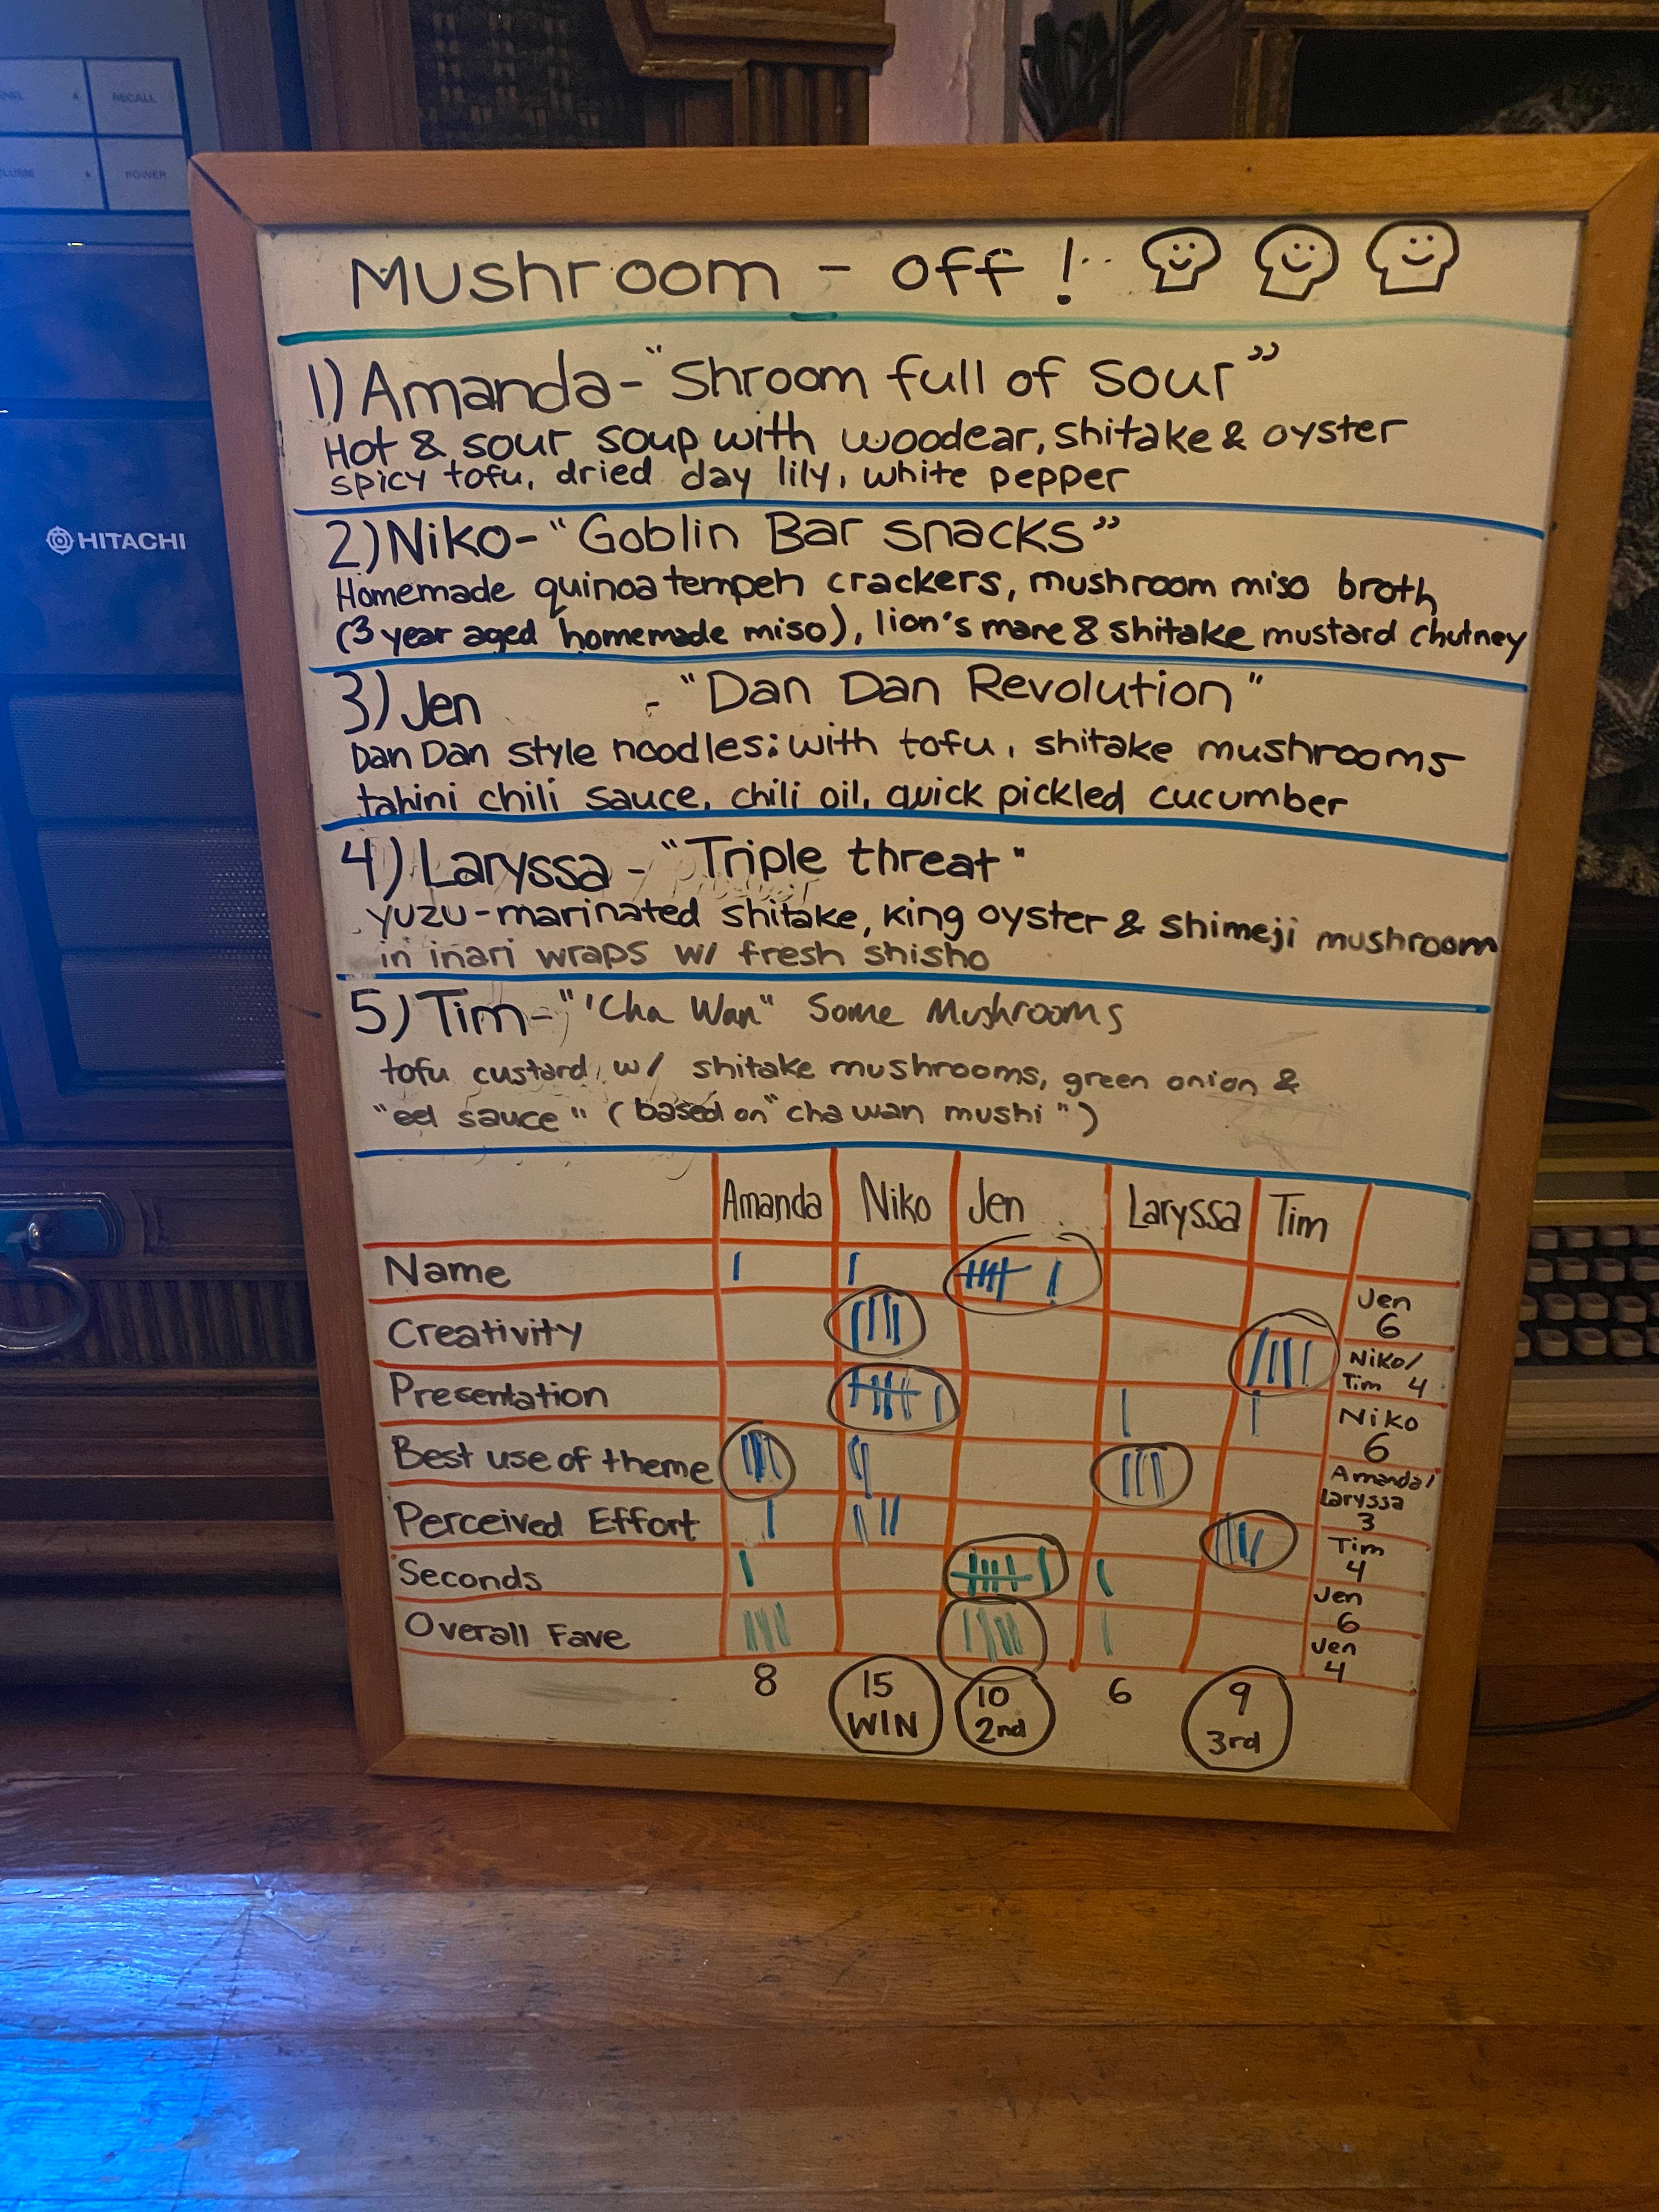 RECALL
POWER
HITACHI
Mushroom - off !
1) Amanda - "Shroom full of sour"
Hot & sour soup with woodear, shitake & oyster
spicy tofu, dried day lily, white pepper
2) Niko - "Goblin Bar snacks"
Homemade quinoa tempeh crackers, mushroom miso broth
(3 year aged homemade miso), lion's mane & shitake mustard chutney
3) Jen - "Dan Dan Revolution"
Dan Dan style noodles: with tofu, shitake mushrooms
tahini chili sauce, chili oil, quick pickled cucumber
4) Laryssa - "Triple threat"
yuzu-marinated shitake, king oyster & shimeji mushroom
in inari wraps w/ fresh shisho
5) Tim - "'Cha Wan" Some Mushrooms
tofu custard w/ shitake mushrooms, green onion &
"eel sauce" (based on "cha wan mushi")
Amanda Niko Jen Laryssa Tim
Name Jen 6
Creativity Niko/ Tim 4
Presentation Niko 6
Best use of theme Amanda/ Laryssa 3
Perceived Effort Tim 4
Seconds Jen 6
Overall Fave Jen 4
8 15 WIN 10 2nd 6 9 3rd